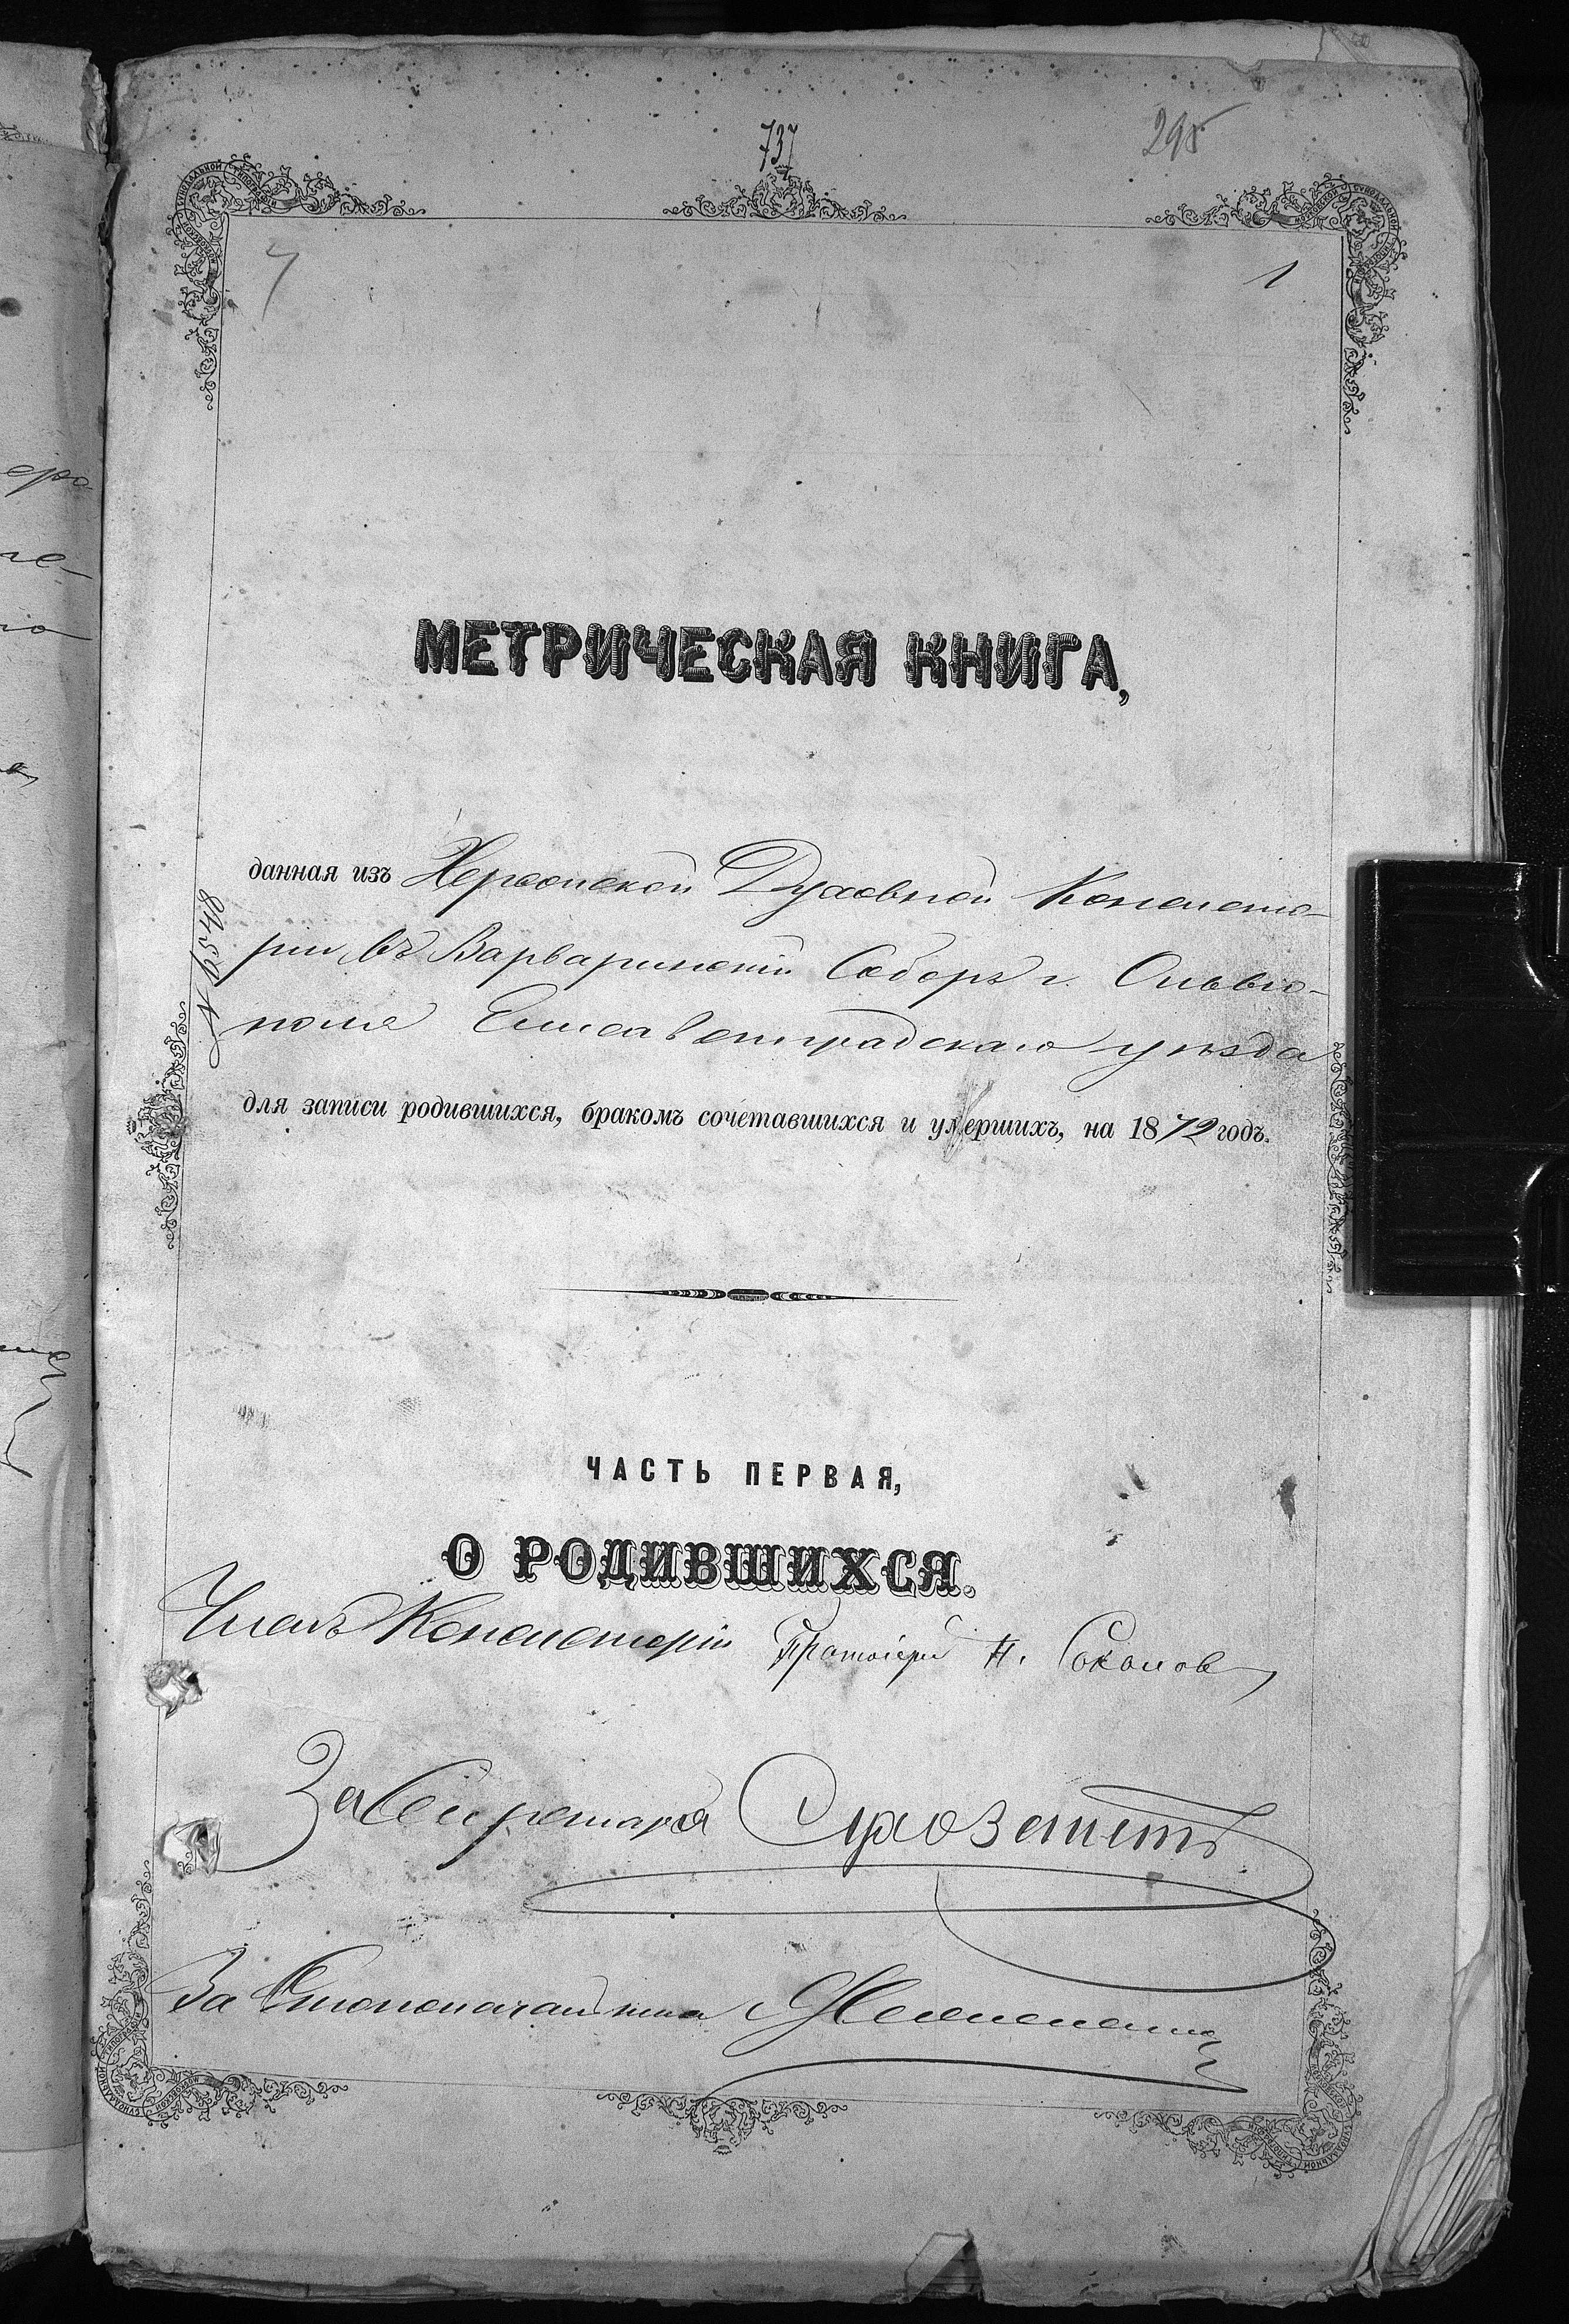 737
295
7
1
МЕТРИЧЕСКАЯ КНИГА,
данная изъ Херсонской Духовной Консисто-
ріи въ Варваринскій Соборъ г. Ольвіо-
поля Елисаветградскаго уѣзда
для записи родившихся, бракомъ сочетавшихся и умершихъ, на 1872 годъ.
№ 6548
ЧАСТЬ ПЕРВАЯ,
О РОДИВШИХСЯ.
Членъ Консисторіи Протоіерей Н. Соколовъ
За Секретаря
За Столоначальника